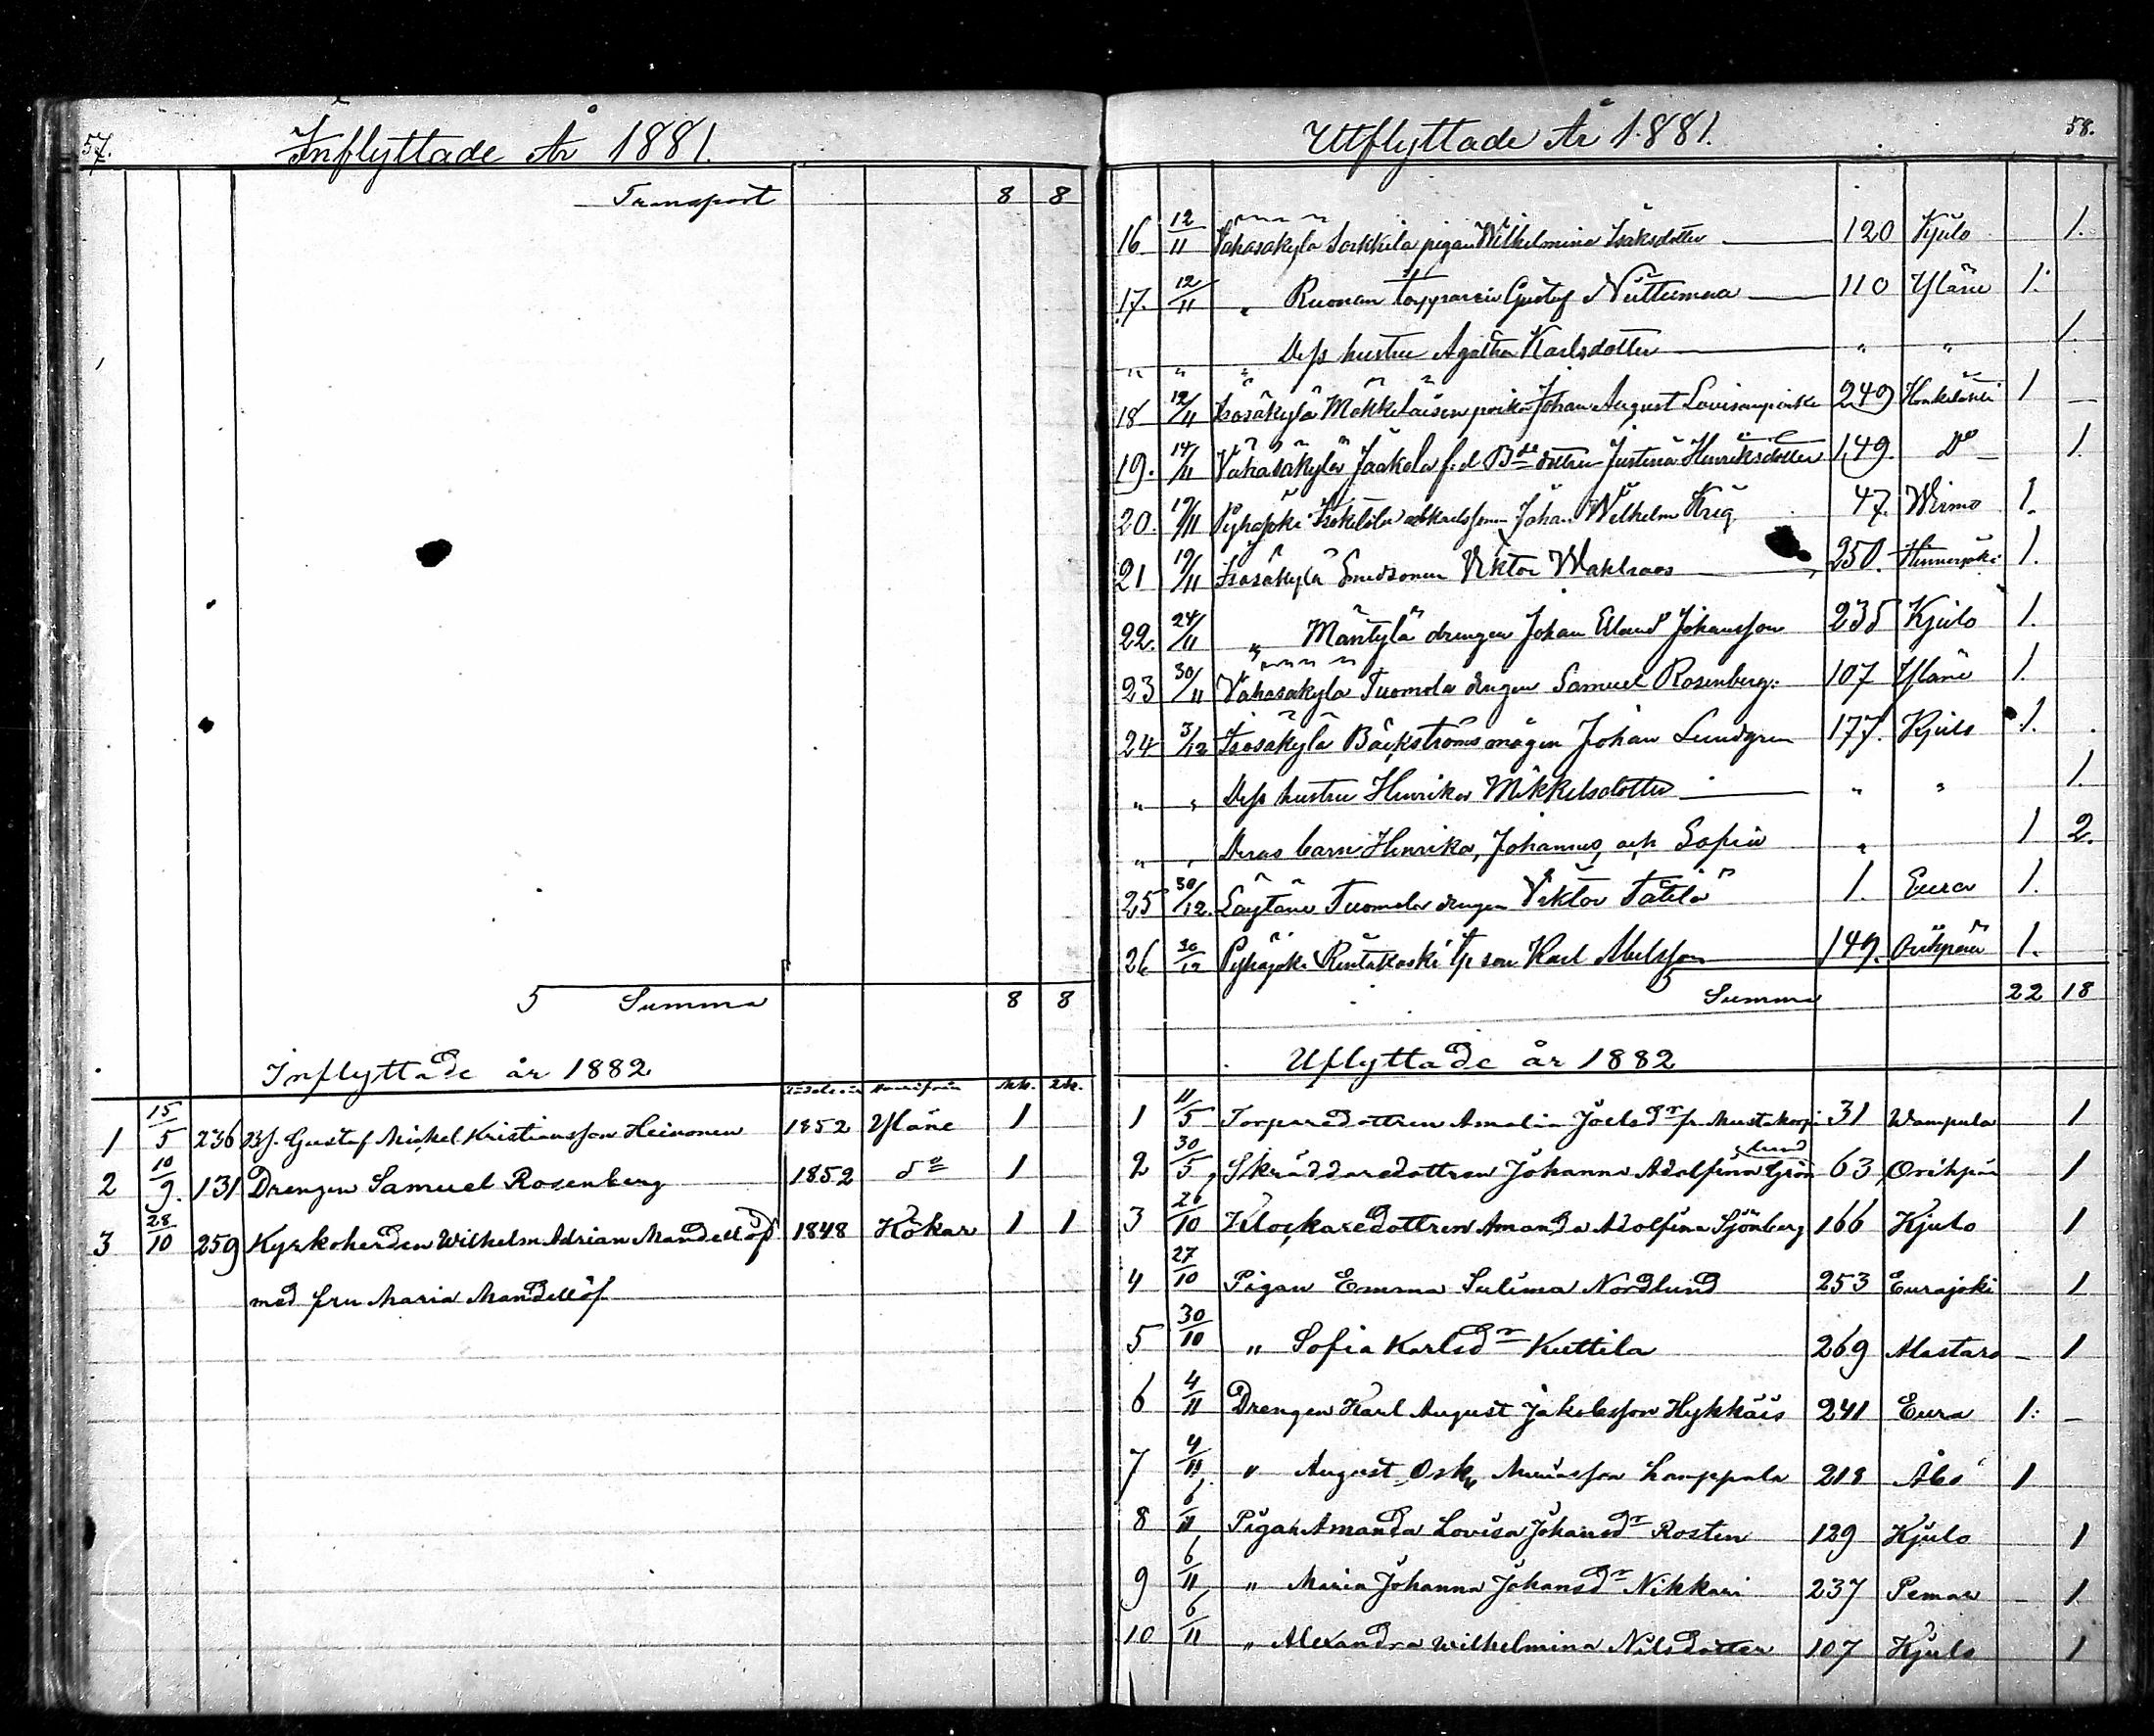 57.
Inflyttade År 1881.
Transport 8 8
5 Summa 8 8
Inflyttade år 1882
Mk. Qk.
1 15/5 236 Bs. Gustaf Mickel Kristiansson Heinonen 1852 Yläne 1
2 10/9. 131 Drengen Samuel Rosenberg 1852 do 1
3 28/10 259 Kyrkoherden Wilhelm Adrian Mandellöf 1848 Kökar 1 1
med fru Maria Mandellöf
58.
Utflyttade År 1881.
16 12/11 Vähäsäkylä Sorkkila pigan Wilhelmina Isaksdotter 120 Kjulo 1.
17. 12/11 " Ruonan Gustaf 110 Yläne 1.
" " " Dess hustru Agatha Karlsdotter " " 1.
18 12/11 Isosäkylä Johan August 249 Honkilahti 1 —
19. 14/11 Vähäsäkylä Jaakola f.d. Bde dottren Justina Henriksdotter 149. Do 1.
20. 17/11 Pyhäjoki Johan Wilhelm Krig 47. Wirmo 1.
21 19/11 Isosäkylä Smedsonen Viktor Wahlroos 250. Hinnerjoki 1.
22. 24/11 " Mäntylä drengen Johan Johansson 235 Kjulo 1.
23 30/11 Vähäsäkylä Tuomola drengen Samuel Rosenberg. 107 Yläne 1.
24 3/12 Isosäkylä Bäckströms mågen Johan Lundgren 177. Kjulo 1.
" " Dess hustru Henrika Mikkelsdotter " " 1.
" " Deras barn Henrika, Johannes, och Sofia " 1 2.
25 30/12. Löytäne Tuomola drengen Viktor Tätilä 1. Eura 1.
26 30/12 Pyhäjoki Rintakoski tp son Karl Abelsson 149. Orihpää 1.
Summa 22 18
Uflyttade år 1882
1 11/5 Torparedottren Amalia Joelsdr fr Mustakorpi 31 Wampula 1
2 30/5, Skräddaredottren Johanna Adolfina Grön 63 Orihpää 1
lund
3 26/10 Klockaredottren Amanda Adolfina Sjönberg 166 Kjulo 1
4 27/10 Pigan Emma Sulima Nordlund 253 Eurajoki 1
5 30/10 " Sofia Karlsdr Kuttila 269 Alastaro — 1
6 4/11 Drengen Karl August Jakobsson Hykkäis 241 Eura 1. —
7 4/11 " August Osk. Lamppala 218 Åbo 1
8 6/11 Pigan Amanda Lovisa Johansdr Rosten 129 Kjulo 1
9 6/11 " Maria Johanna Johansdr Nikkari 237 Pemar 1
10 6/11 " Alexandra Wilhelmina Nilsdotter 107 Kjulo 1